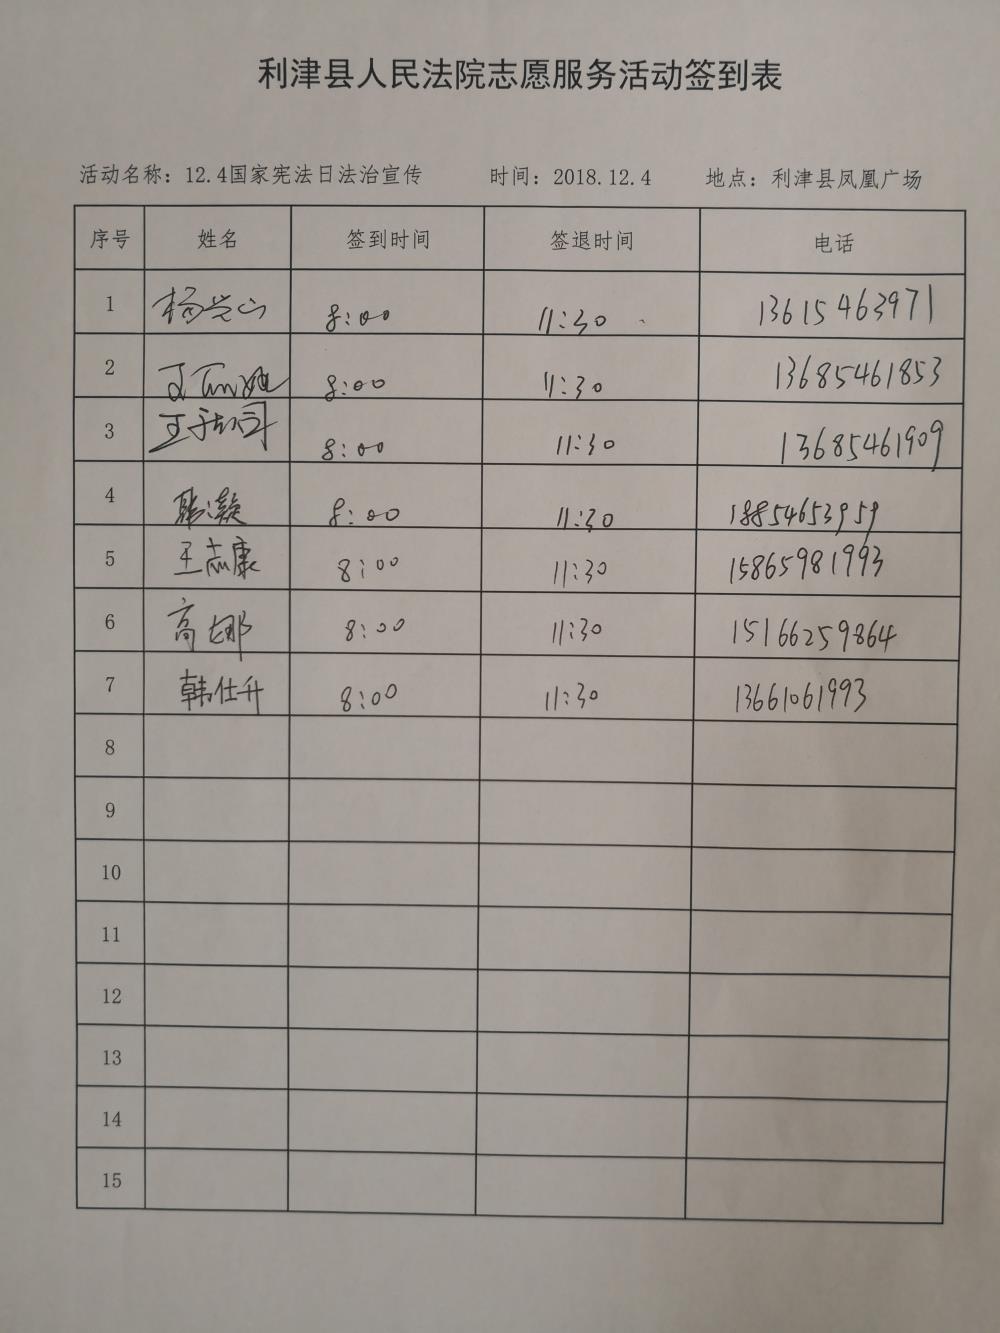 利津县人民法院志愿服务活动签到表
活动名称：12.4国家宪法日法治宣传 时间：2018.12.4 地点：利津县凤凰广场
序号 姓名 签到时间 签退时间 电话
1 8:00 11:30 13615463971
2 8:00 11:30 13685461853
3 8:00 11:30 13685461909
4 韩凝 8:00 11:30 18854653959
5 王志康 8:00 11:30 15865981993
6 高娜 8:00 11:30 15166259864
7 韩仕升 8:00 11:30 13661061993
8
9
10
11
12
13
14
15